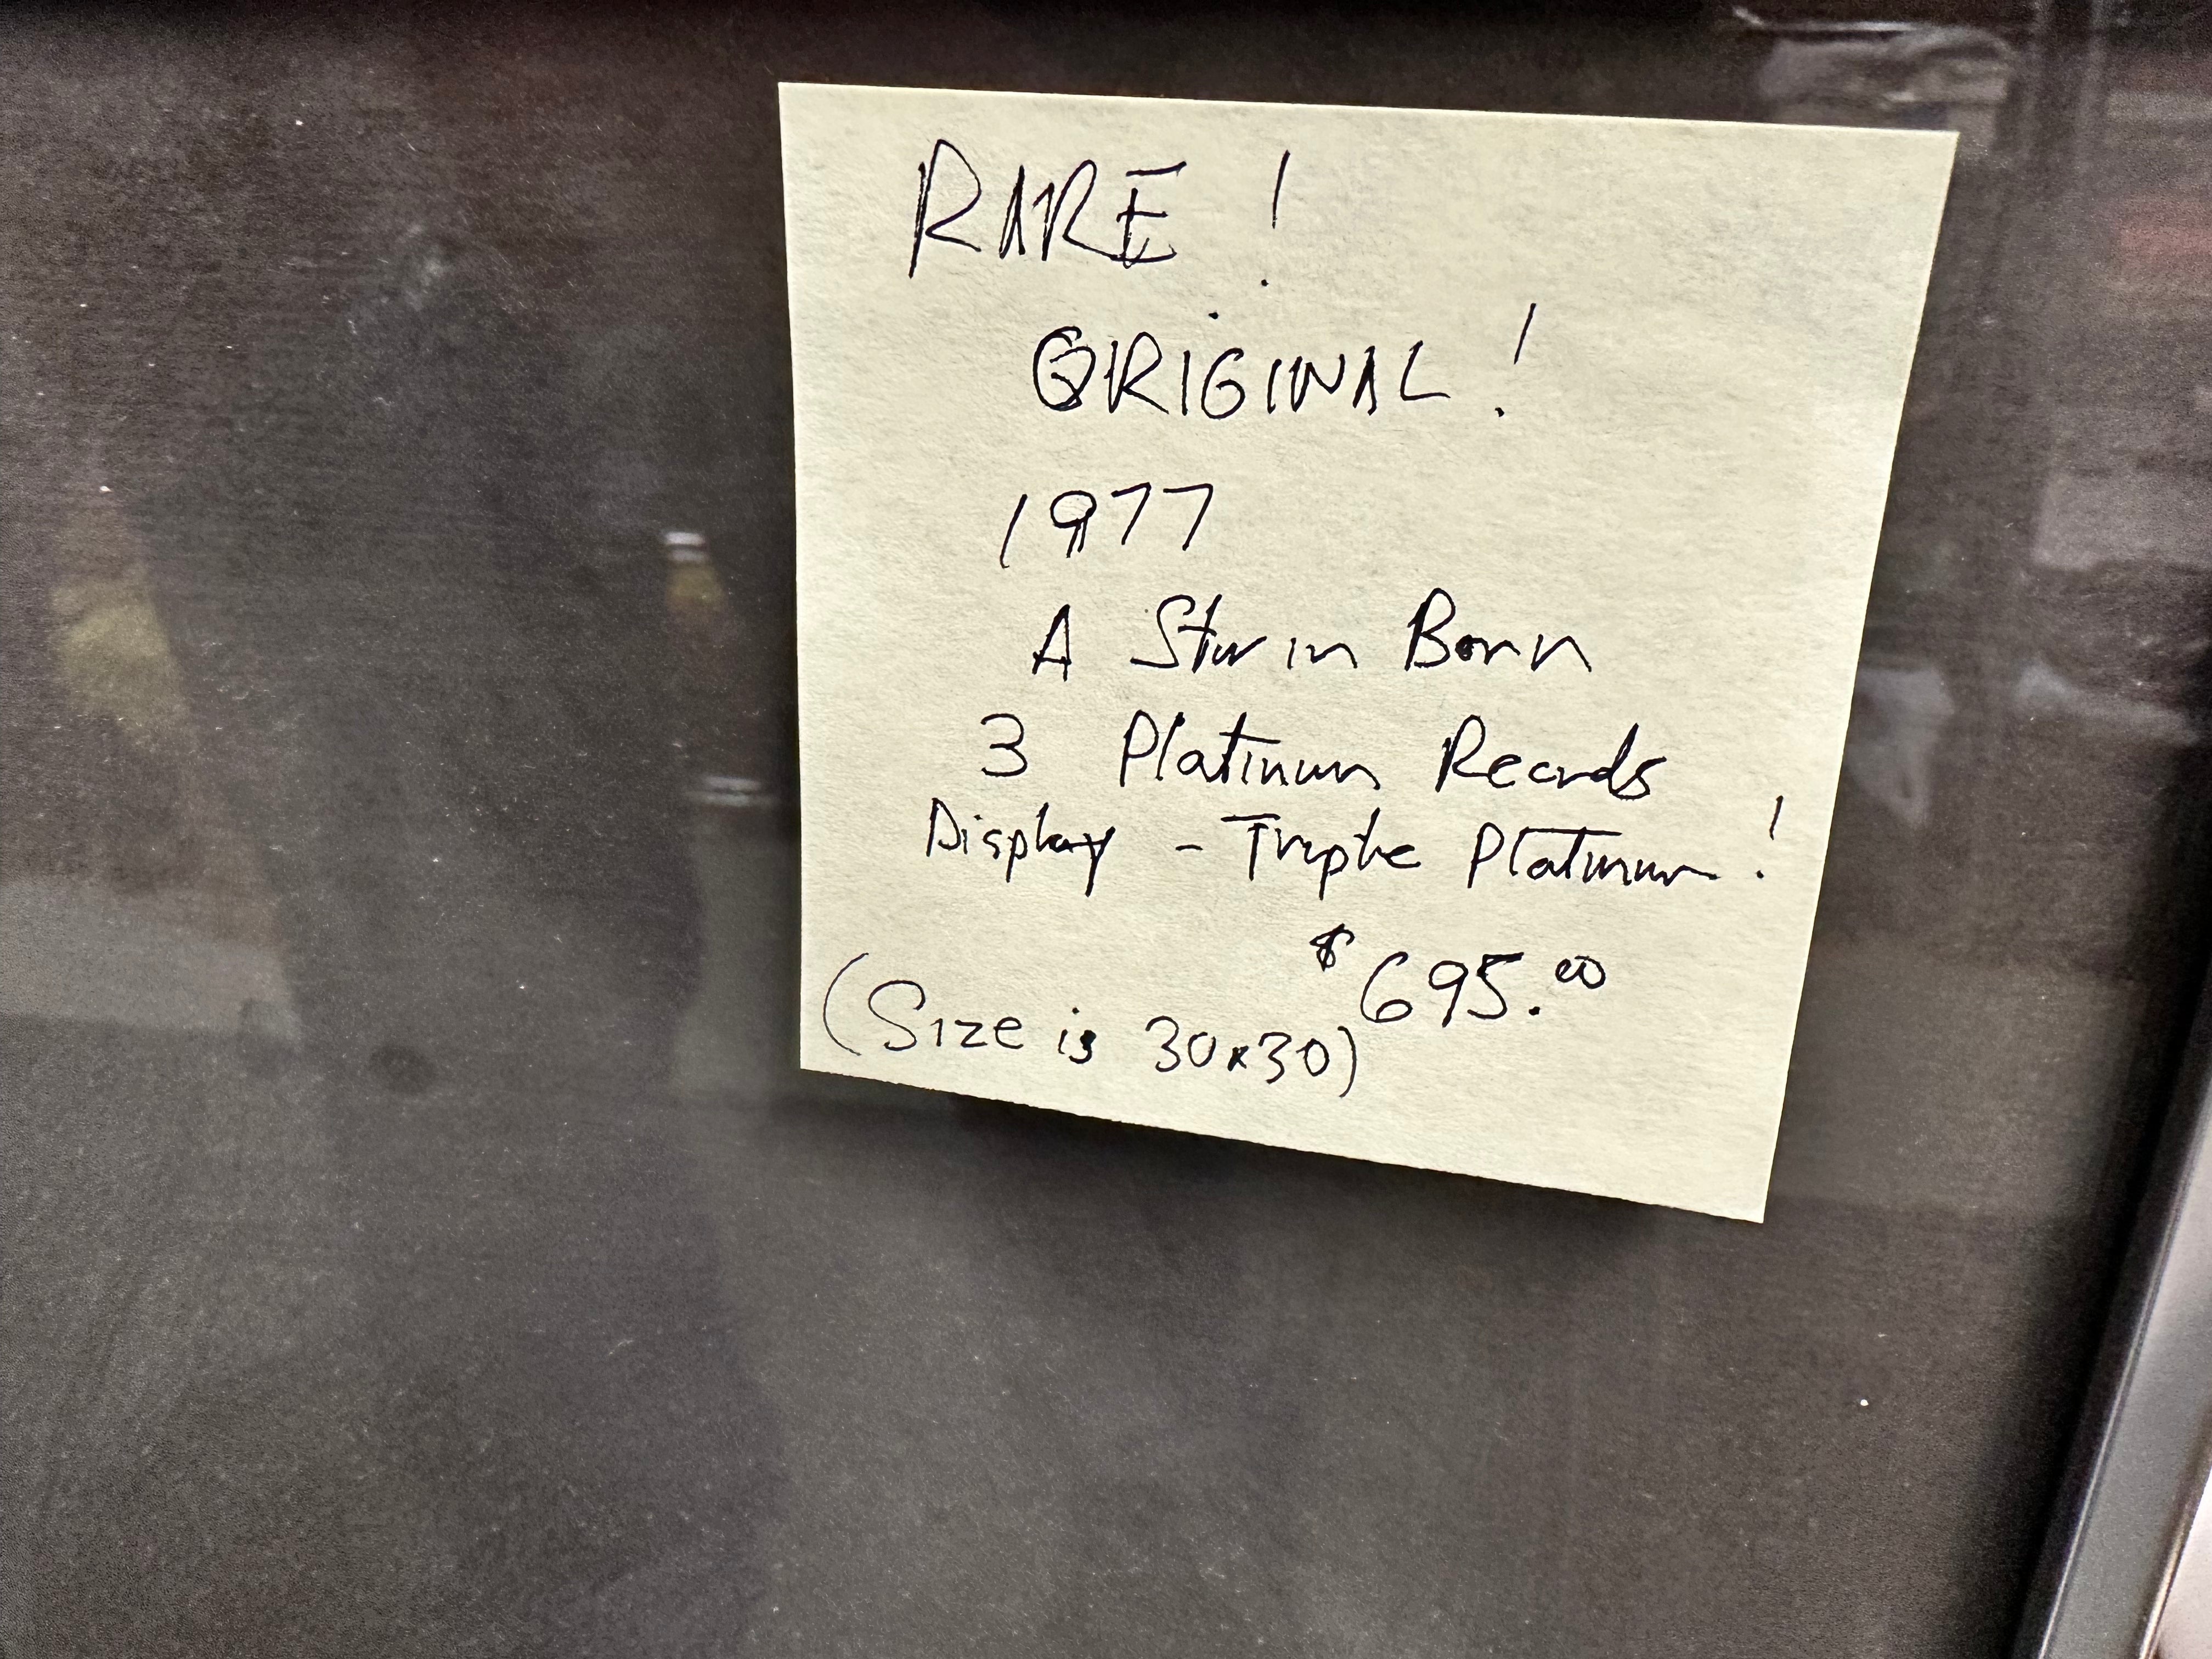 RARE!
ORIGINAL!
1977
A Star is Born
3 Platinum Records
Display - Triple Platinum!
$695.00
(Size is 30x30)